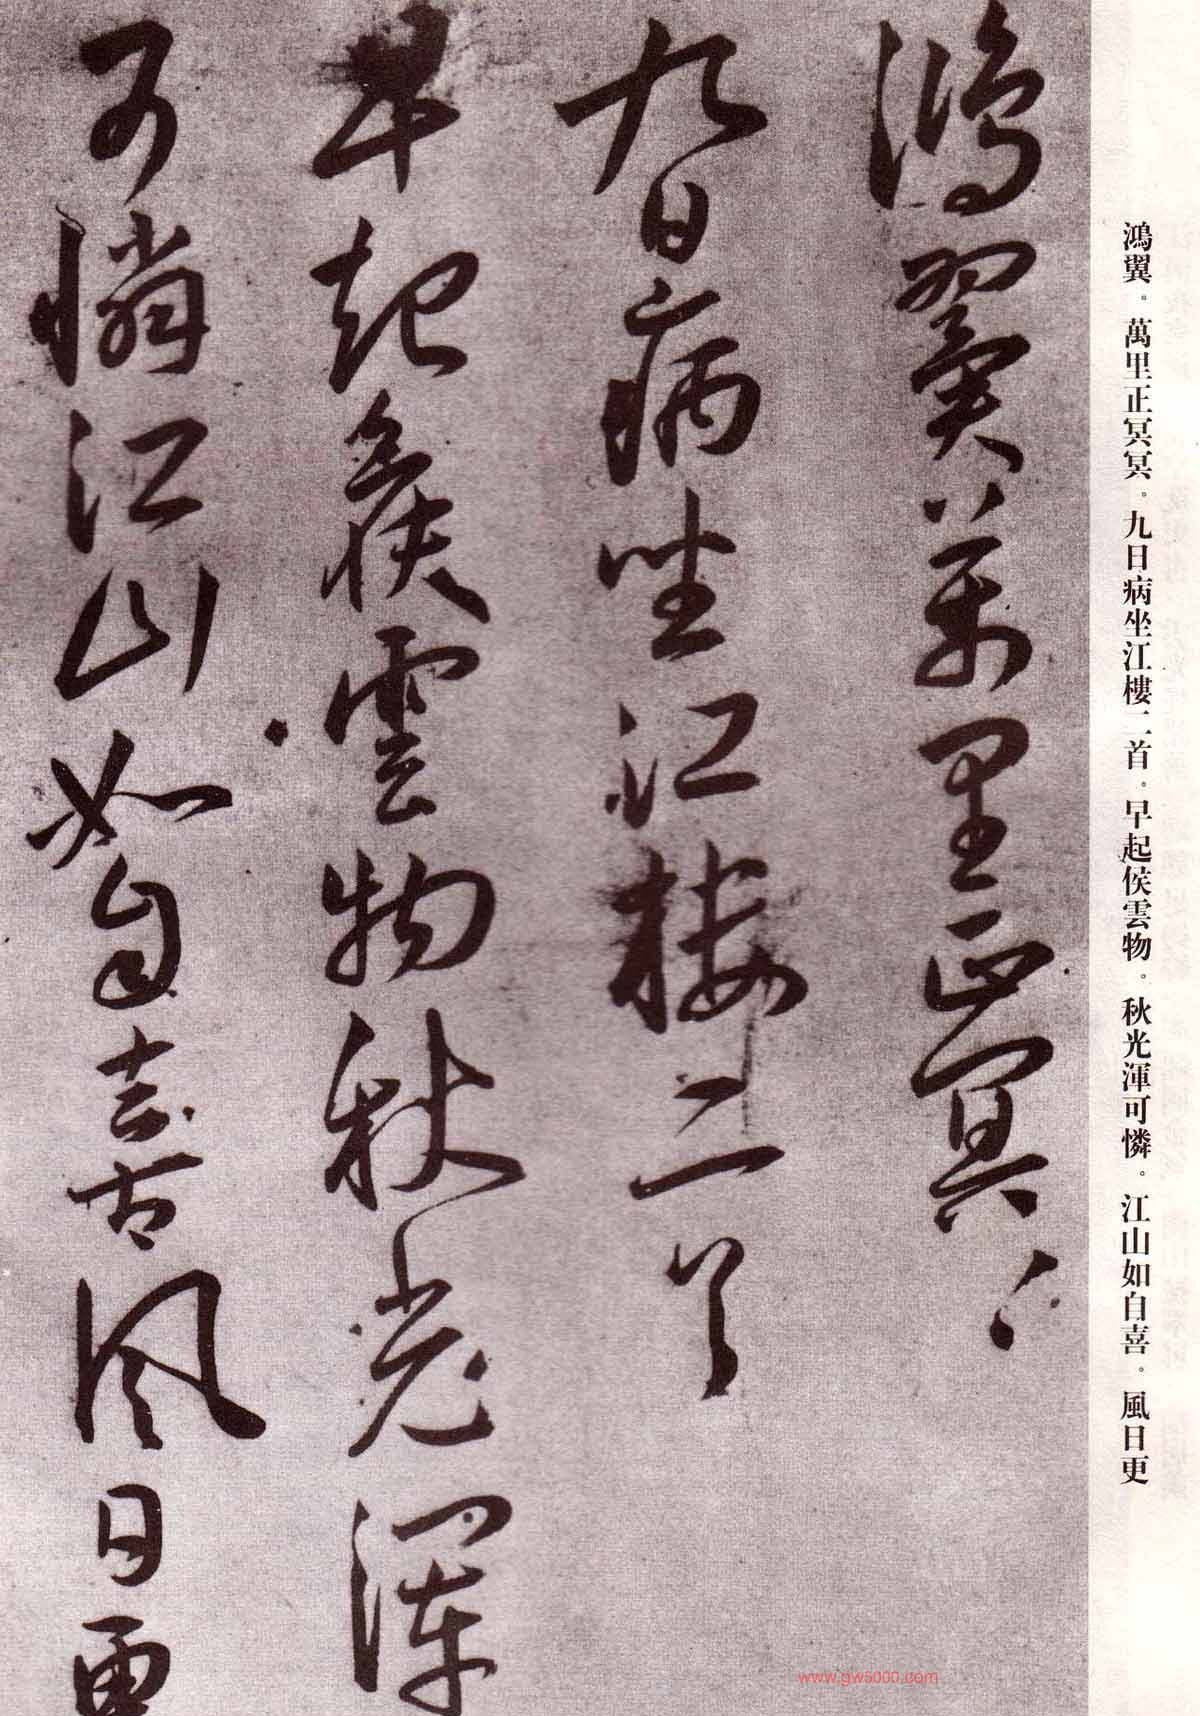 鴻翼。萬里正冥冥。九日病坐江樓二首。早起侯雲物。秋光渾可憐。江山如自喜。風日更
鴻翼萬里正冥〻
九日病坐江樓二首
早起候雲物秋光渾
可憐江山如自喜風日更
www.gw5000.com